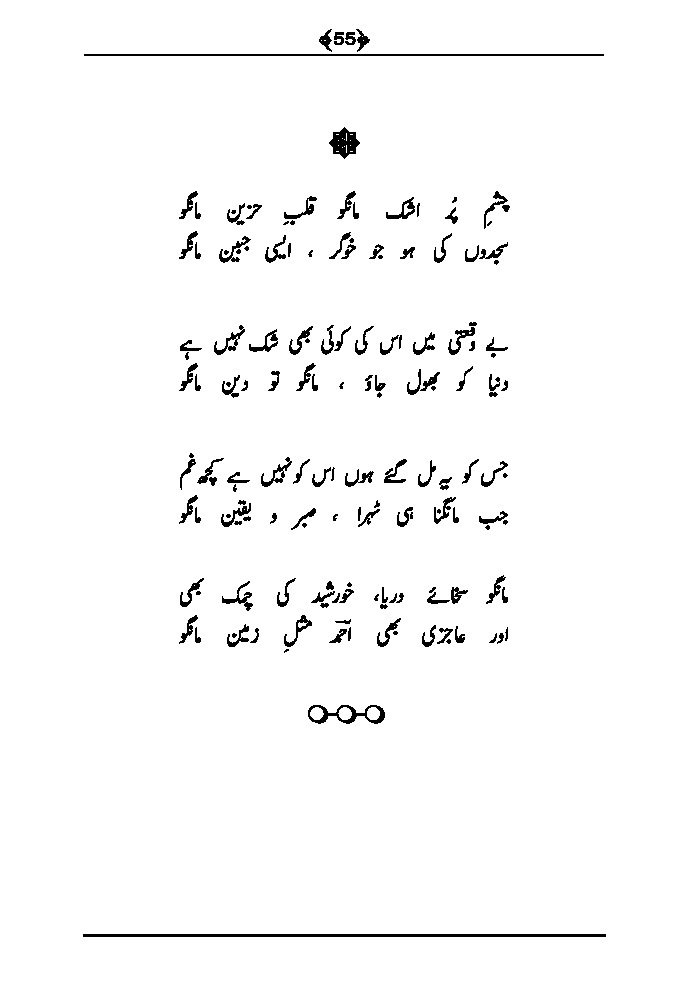 55
چشمِ پُر اشک مانگو قلبِ حزین مانگو
سجدوں کی ہو جو خوگر ، ایسی جبین مانگو
بے وقعتی میں اس کی کوئی بھی شک نہیں ہے
دنیا کو بھول جاؤ ، مانگو تو دین مانگو
جس کو یہ مل گئے ہوں اس کو نہیں ہے کچھ غم
جب مانگنا ہی ٹہرا ، صبر و یقین مانگو
مانگو سخائے دریا، خورشید کی چمک بھی
اور عاجزی بھی احمؔد مثلِ زمین مانگو